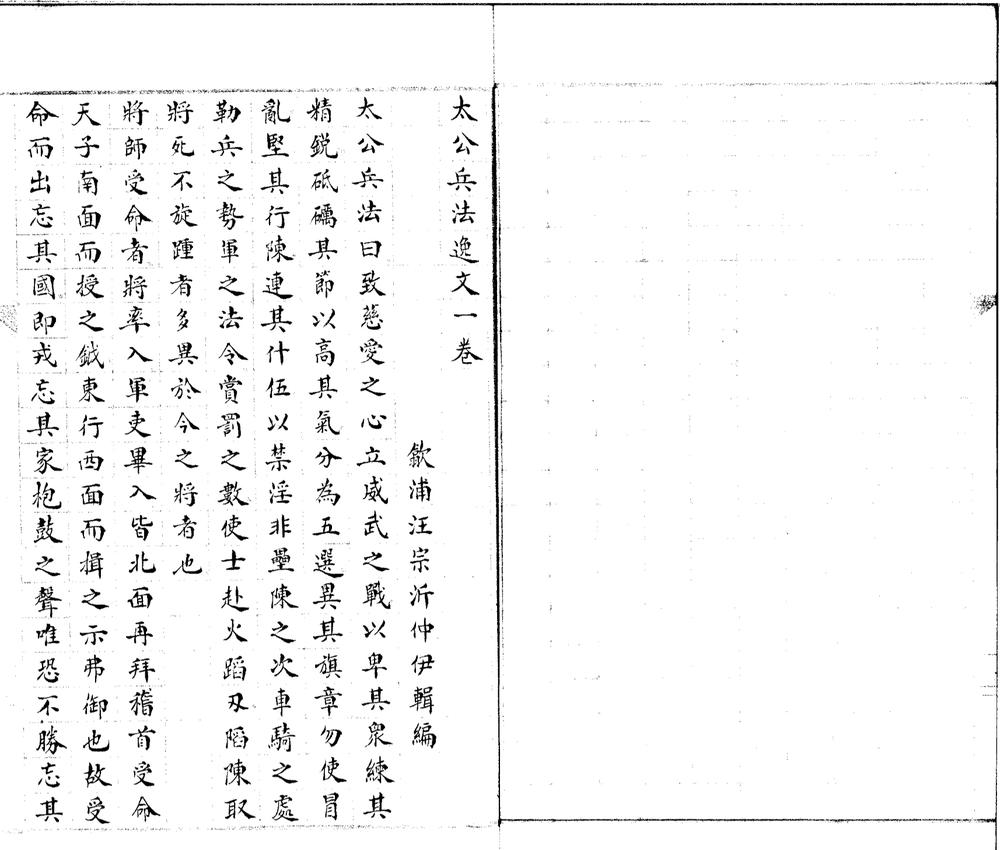 太公兵法逸文一卷
歙浦汪宗沂仲伊輯編
太公兵法曰致慈愛之心立威武之戰以卑其衆練其
精銳砥礪其節以高其氣分為五選異其旗章勿使冒
亂堅其行陳連其什伍以禁淫非壘陳之次車騎之處
勒兵之勢軍之法令賞罰之數使士赴火蹈刃陷陳取
將死不旋踵者多異於今之將者也
將師受命者將率入軍吏畢入皆北面再拜稽首受命
天子南面而授之鉞東行西面而揖之示弗御也故受
命而出忘其國即戎忘其家枹鼓之聲唯恐不勝忘其